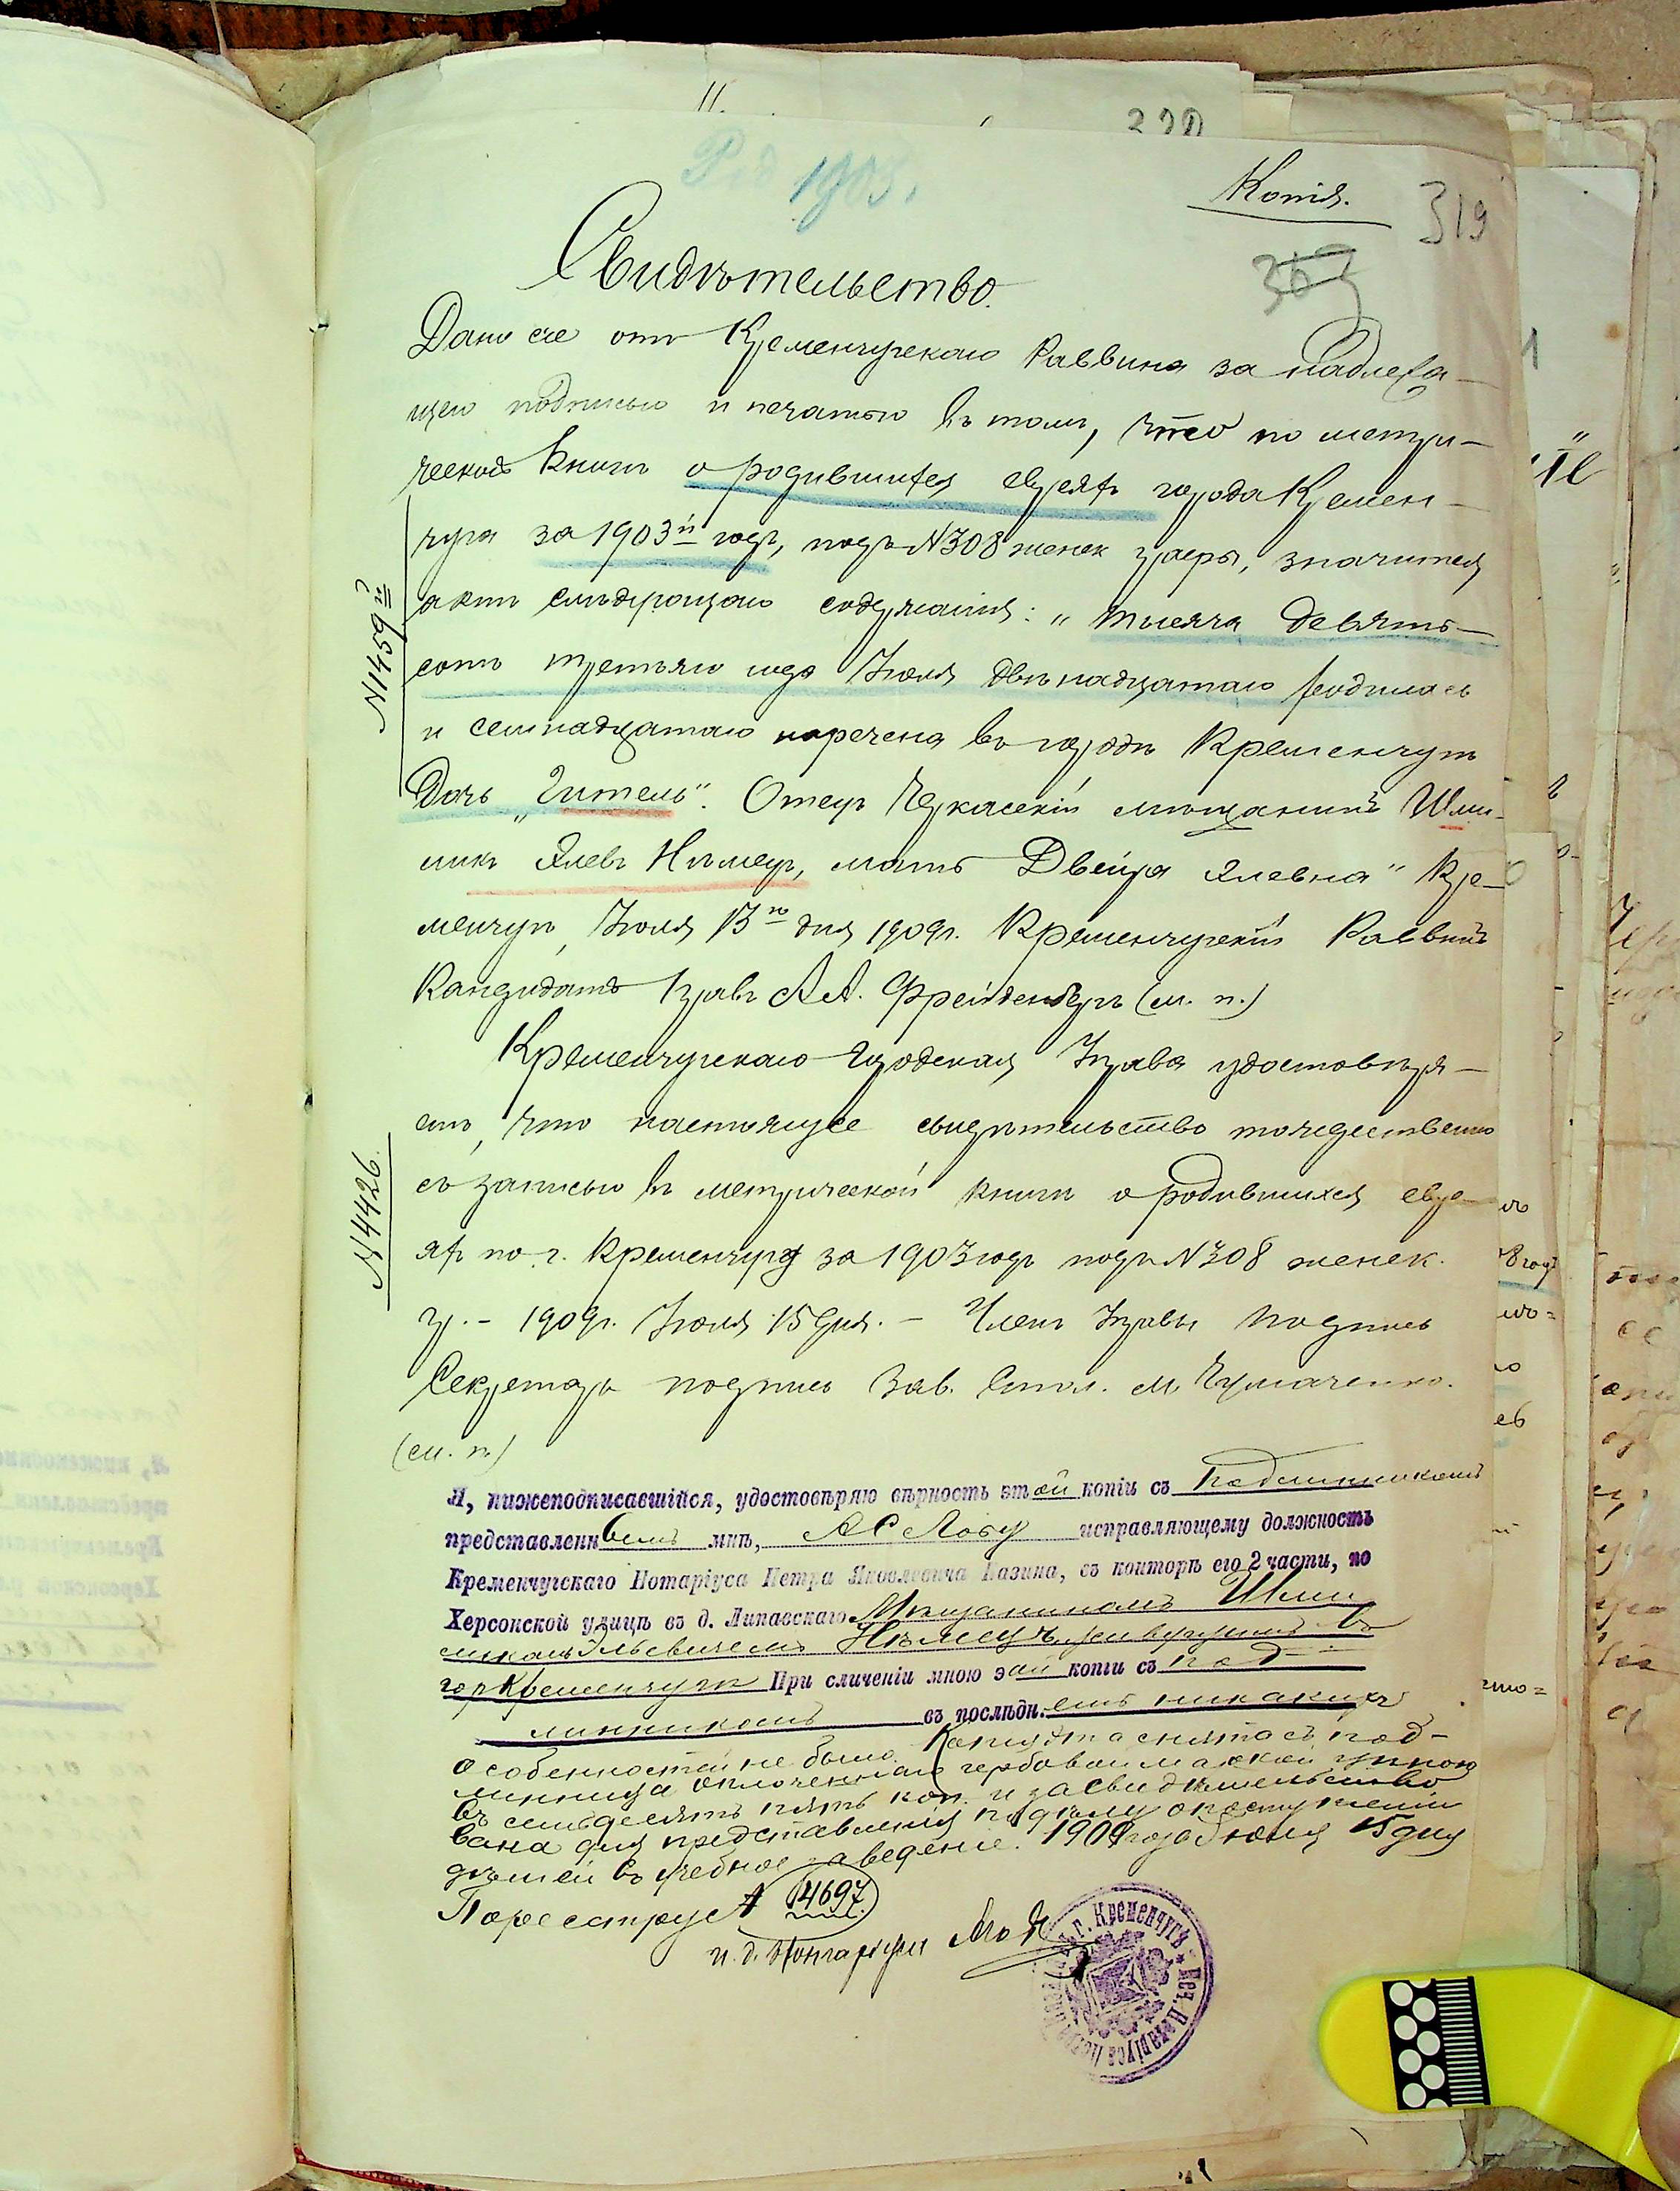 Род 1903.
Копія.
319
369
Свидѣтельство.
Дано сіе отъ Кременчугскаго Раввина за надлежа-
щею подписью и печатью въ томъ, что по метри-
ческой книгѣ о родившихся евреяхъ города Кремен-
чуга за 1903й годъ, подъ №308 женск графы, значится
актъ слѣдующаго содержанія: „Тысяча девять-
сотъ третьяго года Іюля двѣнадцатаго родилась
и семнадцатаго наречена въ городѣ Кременчугѣ
дочь „Гитель". Отецъ Черкасскій мѣщанинъ Шли-
микъ Элевъ Нѣмецъ, мать Двейра Элевна" Кре-
менчугъ, Іюля 13го дня 1909г. Кременчугскій Раввинъ
Кандидатъ правъ А.А. Фрейденбергъ (м. п.)
№1459й
Кременчугская Городская Управа удостовѣря-
етъ, что настоящее свидѣтельство тождественно
съ записью въ метрической книгѣ о родившихся евре-
яхъ по г. Кременчугу за 1903 годъ подъ №308 женск.
гр. - 1909г. Іюля 15 дня. - Членъ Управы подпись
Секретарь подпись Зав. Стол. М. Чумаченко.
(м. п.)
№4426.
Я, нижеподписавшійся, удостовѣряю вѣрность этой копіи съ подлинникомъ
представленнымъ мнѣ, исправляющему должность
Кременчугскаго Нотаріуса Петра Яковлевича Казина, въ конторѣ его 2 части, по
Херсонской улицѣ въ д. Липавскаго Мѣщаниномъ Шли-
микомъ Эльевичемъ Нѣмецъ, живущимъ въ
гор Кременчугѣ При сличеніи мною этой копіи съ под-
линникомъ въ послѣдн.емъ никакихъ
особенностей не было. Копія эта снята съ под-
линника оплоченнаго гербовой маркой цѣною
въ семьдесятъ пять коп. и засвидѣтельство
вана для представленія по дѣлу о поступленіи
дѣтей въ учебное заведеніе. 1909 года Іюля 15 дня
По реестру № 4697
и. д. Нотаріуса
г. Кременчугъ